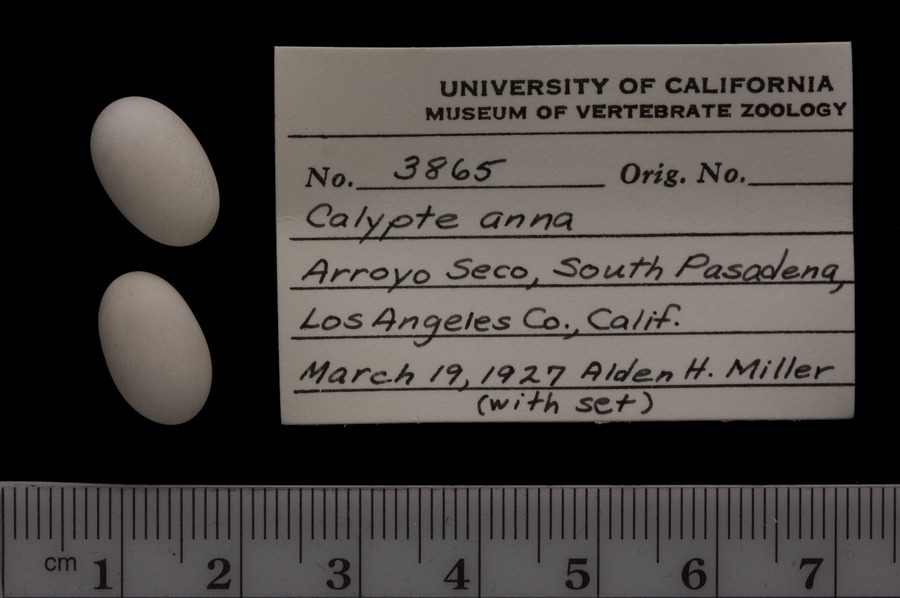 UNIVERSITY OF CALIFORNIA
MUSEUM OF VERTEBRATE ZOOLOGY
No. 3865 Orig. No.
Calypte anna
Arroyo Seco, South Pasadena,
Los Angeles Co., Calif.
March 19, 1927 Alden H. Miller
(with set)
cm 1 2 3 4 5 6 7